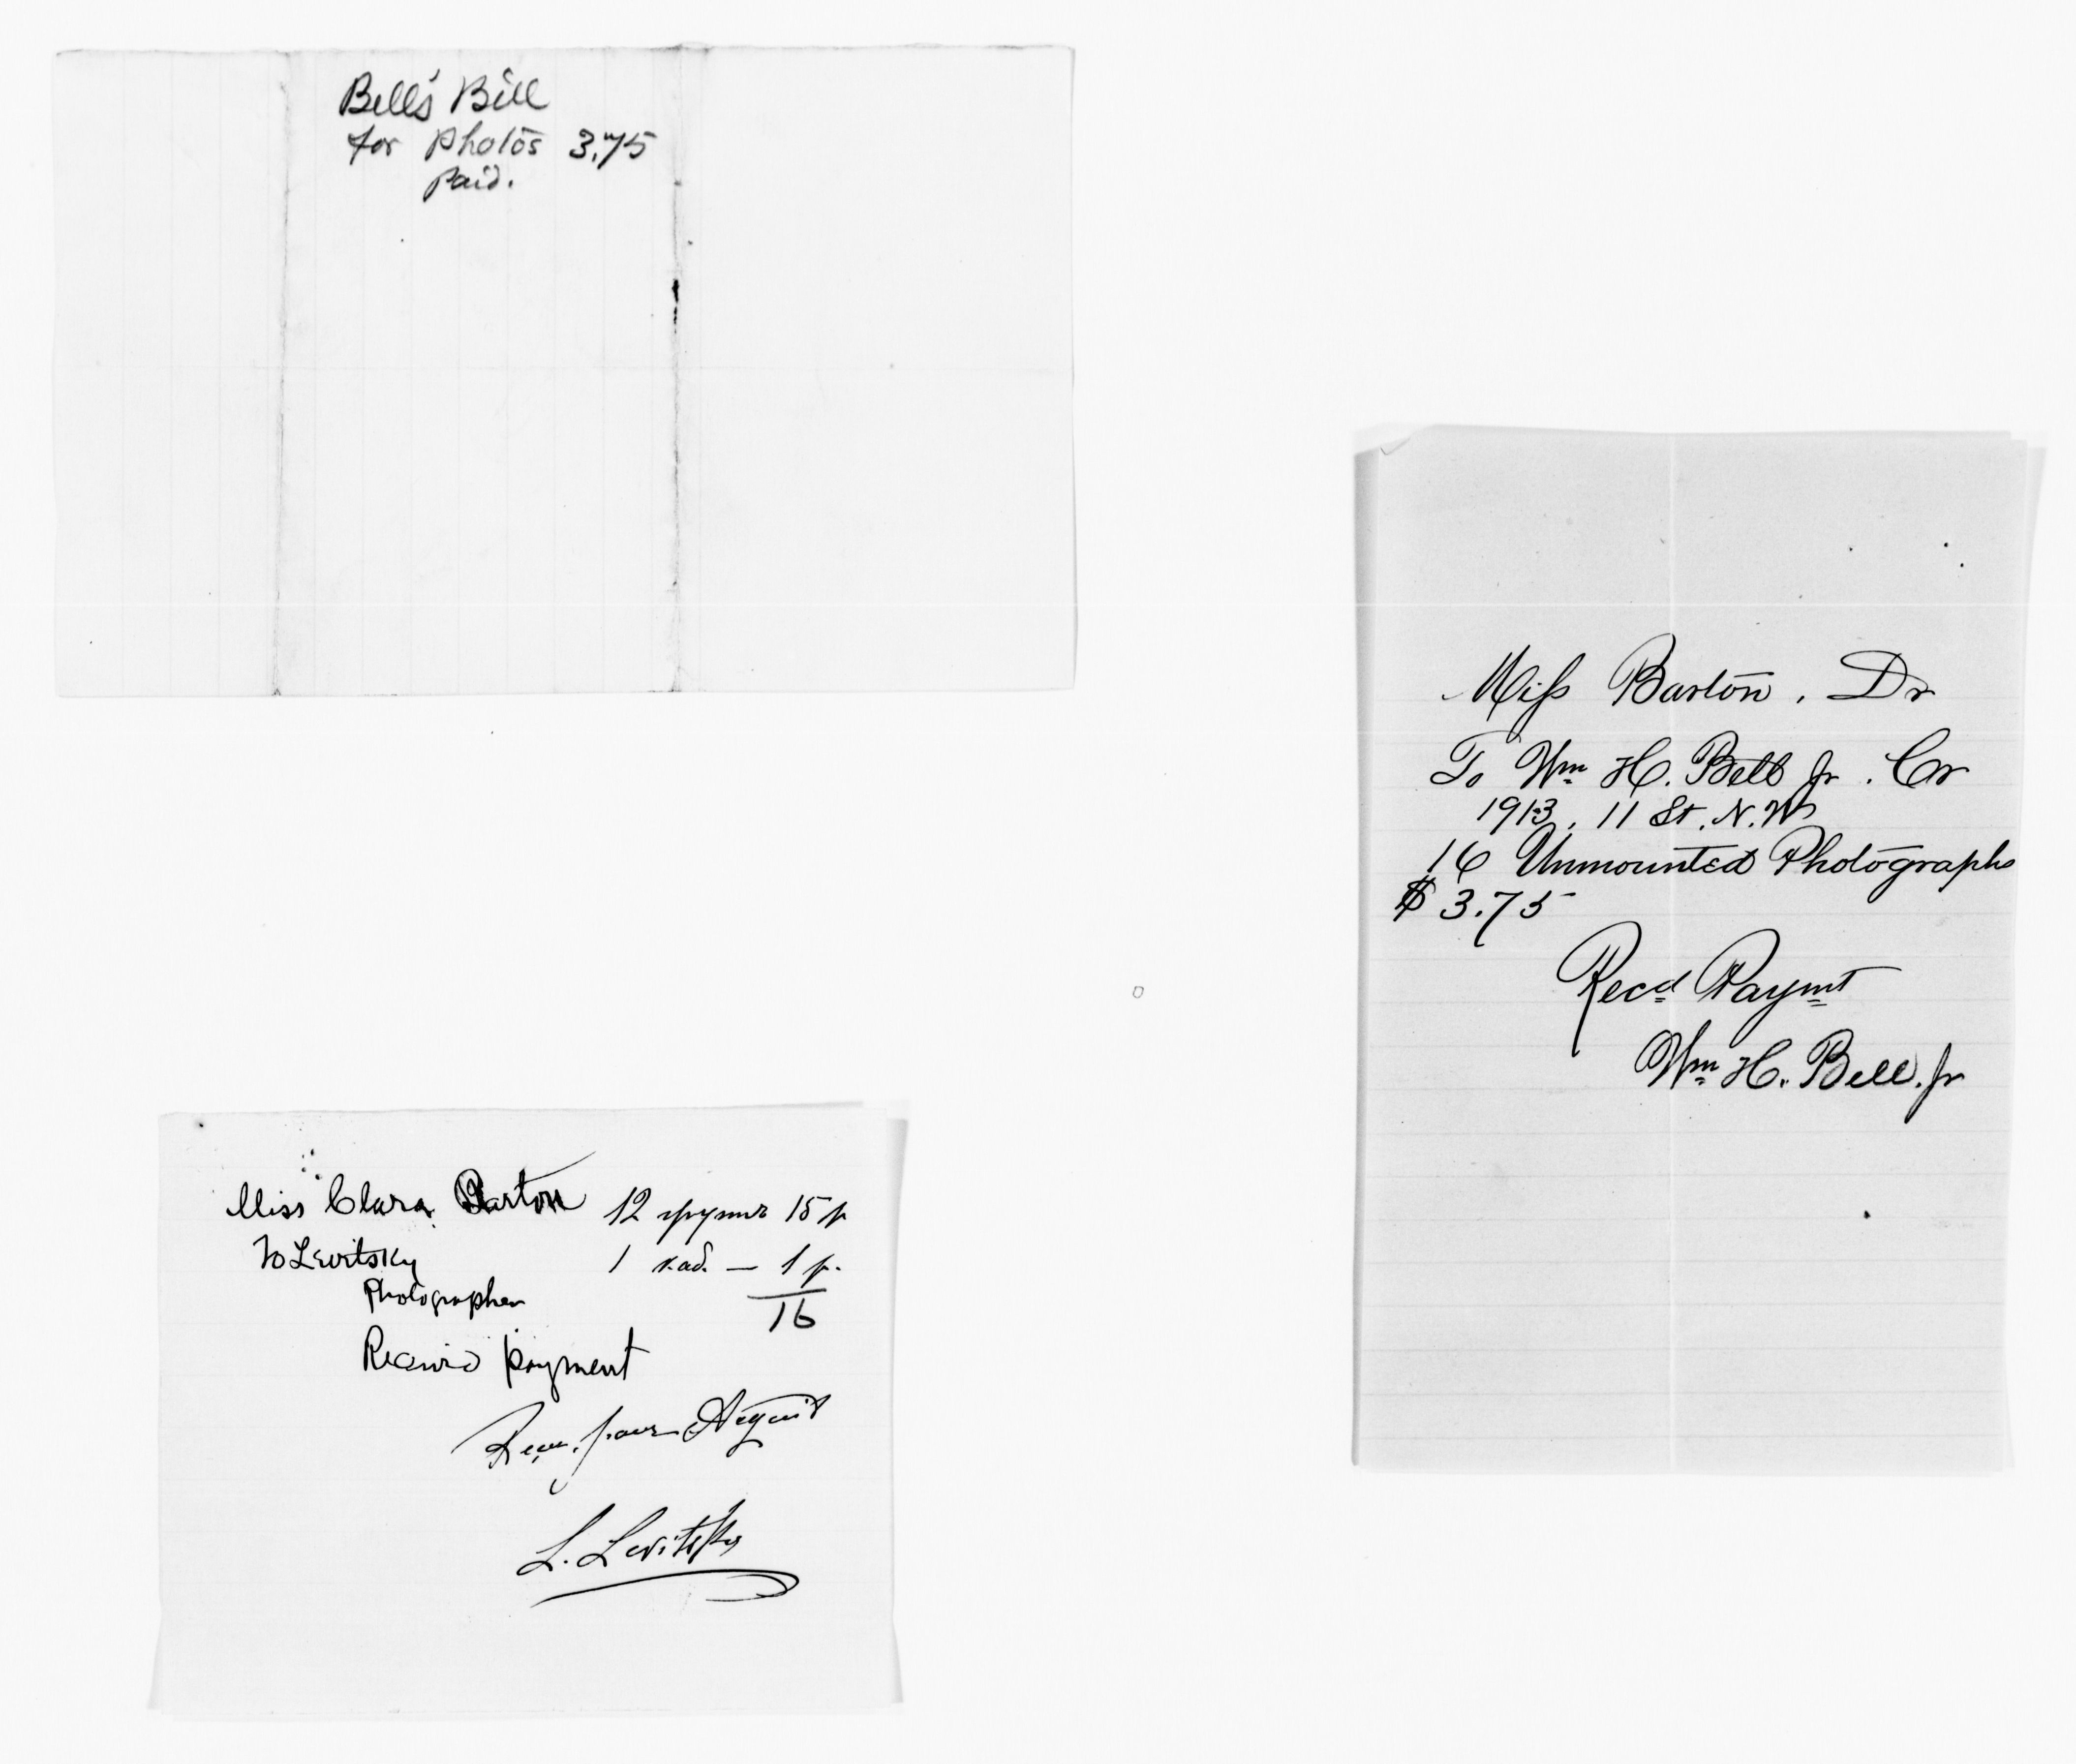 Bell's Bill
for Photos 3.75
Paid.
Miss Barton, Dr
To Wm H. Bell Jr. Cr
1913, 11 St. N.W
16 Unmounted Photographs
$ 3.75
Recd Paymt
Wm H. Bell. Jr
Miss Clara Barton 12 группъ 15 р
To Levitsky 1 каб. — 1 р.
Photographer 16
Receivd payment
Reçu pour Acquit
L. Levitsky